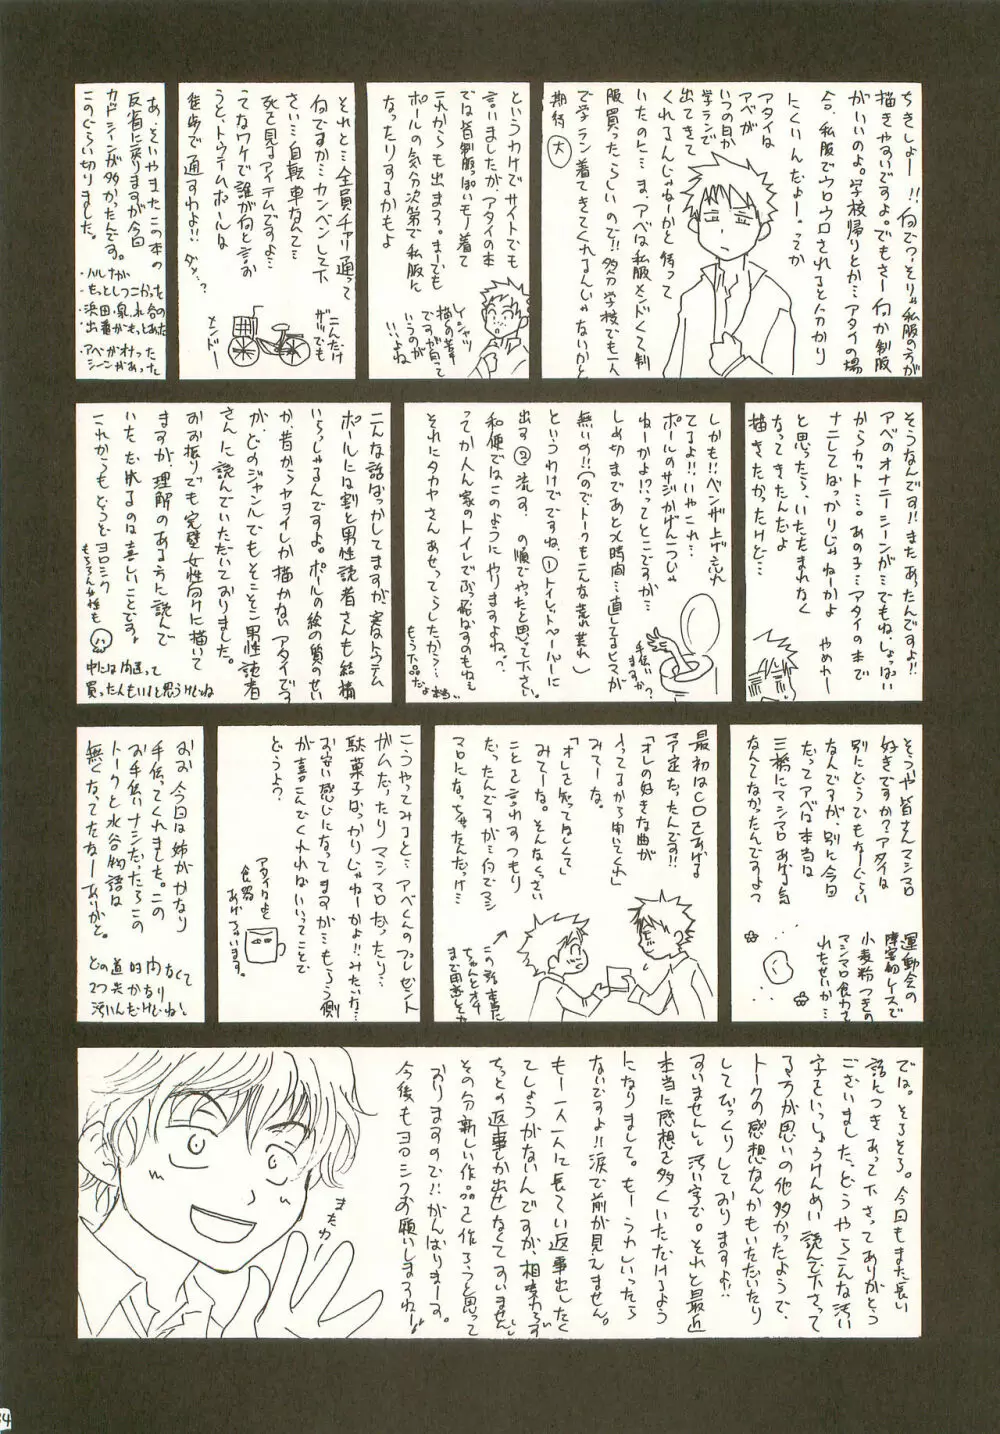 ちきしょー!!何で?そりゃ私服の方が
描きやすいですよ。でもさー何か制服
がいいのよ。学校帰りとか…アタイの場
合、私服でウロウロされるとん分かり
にくいんだよー。ってか
アタイは
アベが
いつの日か
学ランで
出てきて
くれるんじゃねーかと待って
いたのに…ま、アベは私服メンドくて制
服買ったらしいので!!多分学校でも一人
で学ラン着てきてくれるんじゃないかと
期待大
というわけでサイトでも
言いましたがアタイの本
では皆制服っぽいモノ着て
これからも出ます。まーでも
ポールの気分次第で私服に
なったりするかもよ
Yシャツ
描くの基本
ですが何て
いうのが
!!よね
それと…全員チャリ通って
何ですか…カンベンして下
さい…自転車なんて…
死を見るアイテムですよ…
ってなワケで誰が何と言お
うと、トウテムポールは
徒歩で通すわよ!!ダメ…?
こんだけ
ザツでも
メンドー
あ、そいやまたこの本の
反省に戻りますが今回
カットシーンが多かったんです。
このぐらい切りました。
・ハルナが
もっとしつこかった
・浜田・泉・水谷の
出番がもっとあった
・アベがオナった
シーンがあった
そうなんです!!またあったんですよ!!
アベのオナニーシーンが…でもね、しょっぱい
からカット…。あの子…アタイの本で
ナニしてばっかりじゃねーかよ
と思ったら、いたたまれなく
なってきたんだよ
描きたかったけど…
やめれー
しかも!!ベンザ上げ忘れ
てるよ!!いやこれ…
ポールのサジかげんこついじゃ
ねーかよ!?ってとこですが…
しめ切まであと火時間…直してるヒマが
無いの!!(ので、トークもこんな荒れ荒れ)
というわけでですね、①トイレットペーパーに
出す ②流す の順でやったと思って下さい。
和便ではこのようにやりますよね。?
ってか人ん家のトイレでぶっ放なすのもねぇ
それにタカヤさんあせってらしたから…。
もう下品だよ本当
手伝い
ますか?
こんな話ばっかしてますが、実はトウテム
ポールには割と男性読者さんも結構
いらっしゃるんですよ。ポールの絵の質のせい
か、昔からヤヨイしか描かないアタイです
が、どのジャンルでもそこそこ男性読者
さんに読んでいただいておりました。
おお振りでも完璧女性向けに描いて
ますが、理解のある方に読んで
いただれるのは喜しいことです。
これからもどうぞヨロシク
もちろん女性も
中には間違って
買ったんもいると思うけどね
そういや皆さんマシマロ
好きですか?アタイは
別にどうでもなーぐらい
なんですが、別に今回
だってアベは本当は
三橋にマシマロあげる気
なんてなかったんですよっ
運動会の
障害物レースで
小麦粉つきの
マシマロ食わて
れたせいか…
最初はCDをあげる
予定だったんです!!
「オレの好きな曲が
入ってるから聞いてくれ」
みてーな。
「オレを知ってほしくて」
みてーな。そんなくっさい
ことを言わすつもり
だったんですが…何でマシ
マロになっちゃたんだっけ…
この話本当に
ちゃんとオチ
まで用意しとや
こうやってみると…アベくんのプレゼント
がムだったりマシマロだったり…
駄菓子ばっかりじゃねーかよ!!みたい方…
お安い感じになってますが…もらう側
が喜こんでくれればいいってことで
どうよ?
アタイだよと
食器
あげちゃいます。
おお、今回は姉がかなり
手伝ってくれました。この
お手伝いナシだったらこの
トークと水谷物語は
無くなってたなーありがと。
どの道時間なくて
2つ共かなり
汚いんもけどね。
では。そろそろ。今回もまた長い
話につきあって下さってありがとう
ございました。どうやらこんな汚い
字をいっしょうけんめい読んで下さって
る方が思いの他多かったようで、
トークの感想なんかもいただいたり
してびっくりしておりますよ!!
すいません。汚い字で。それと最近
本当に感想を多くいただけるよう
になりまして。もーうれしいったら
ないですよ!!涙で前が見えません。
もー一人一人に長てい返事出したく
てしょうがないんですが、相変わらず
ちょっとの返事しか出せなくてすいません。
その分新しい作品を作ろうと思って
おりますので!!がんばります。
今後もヨロシクお願いしますね!
またねー
34